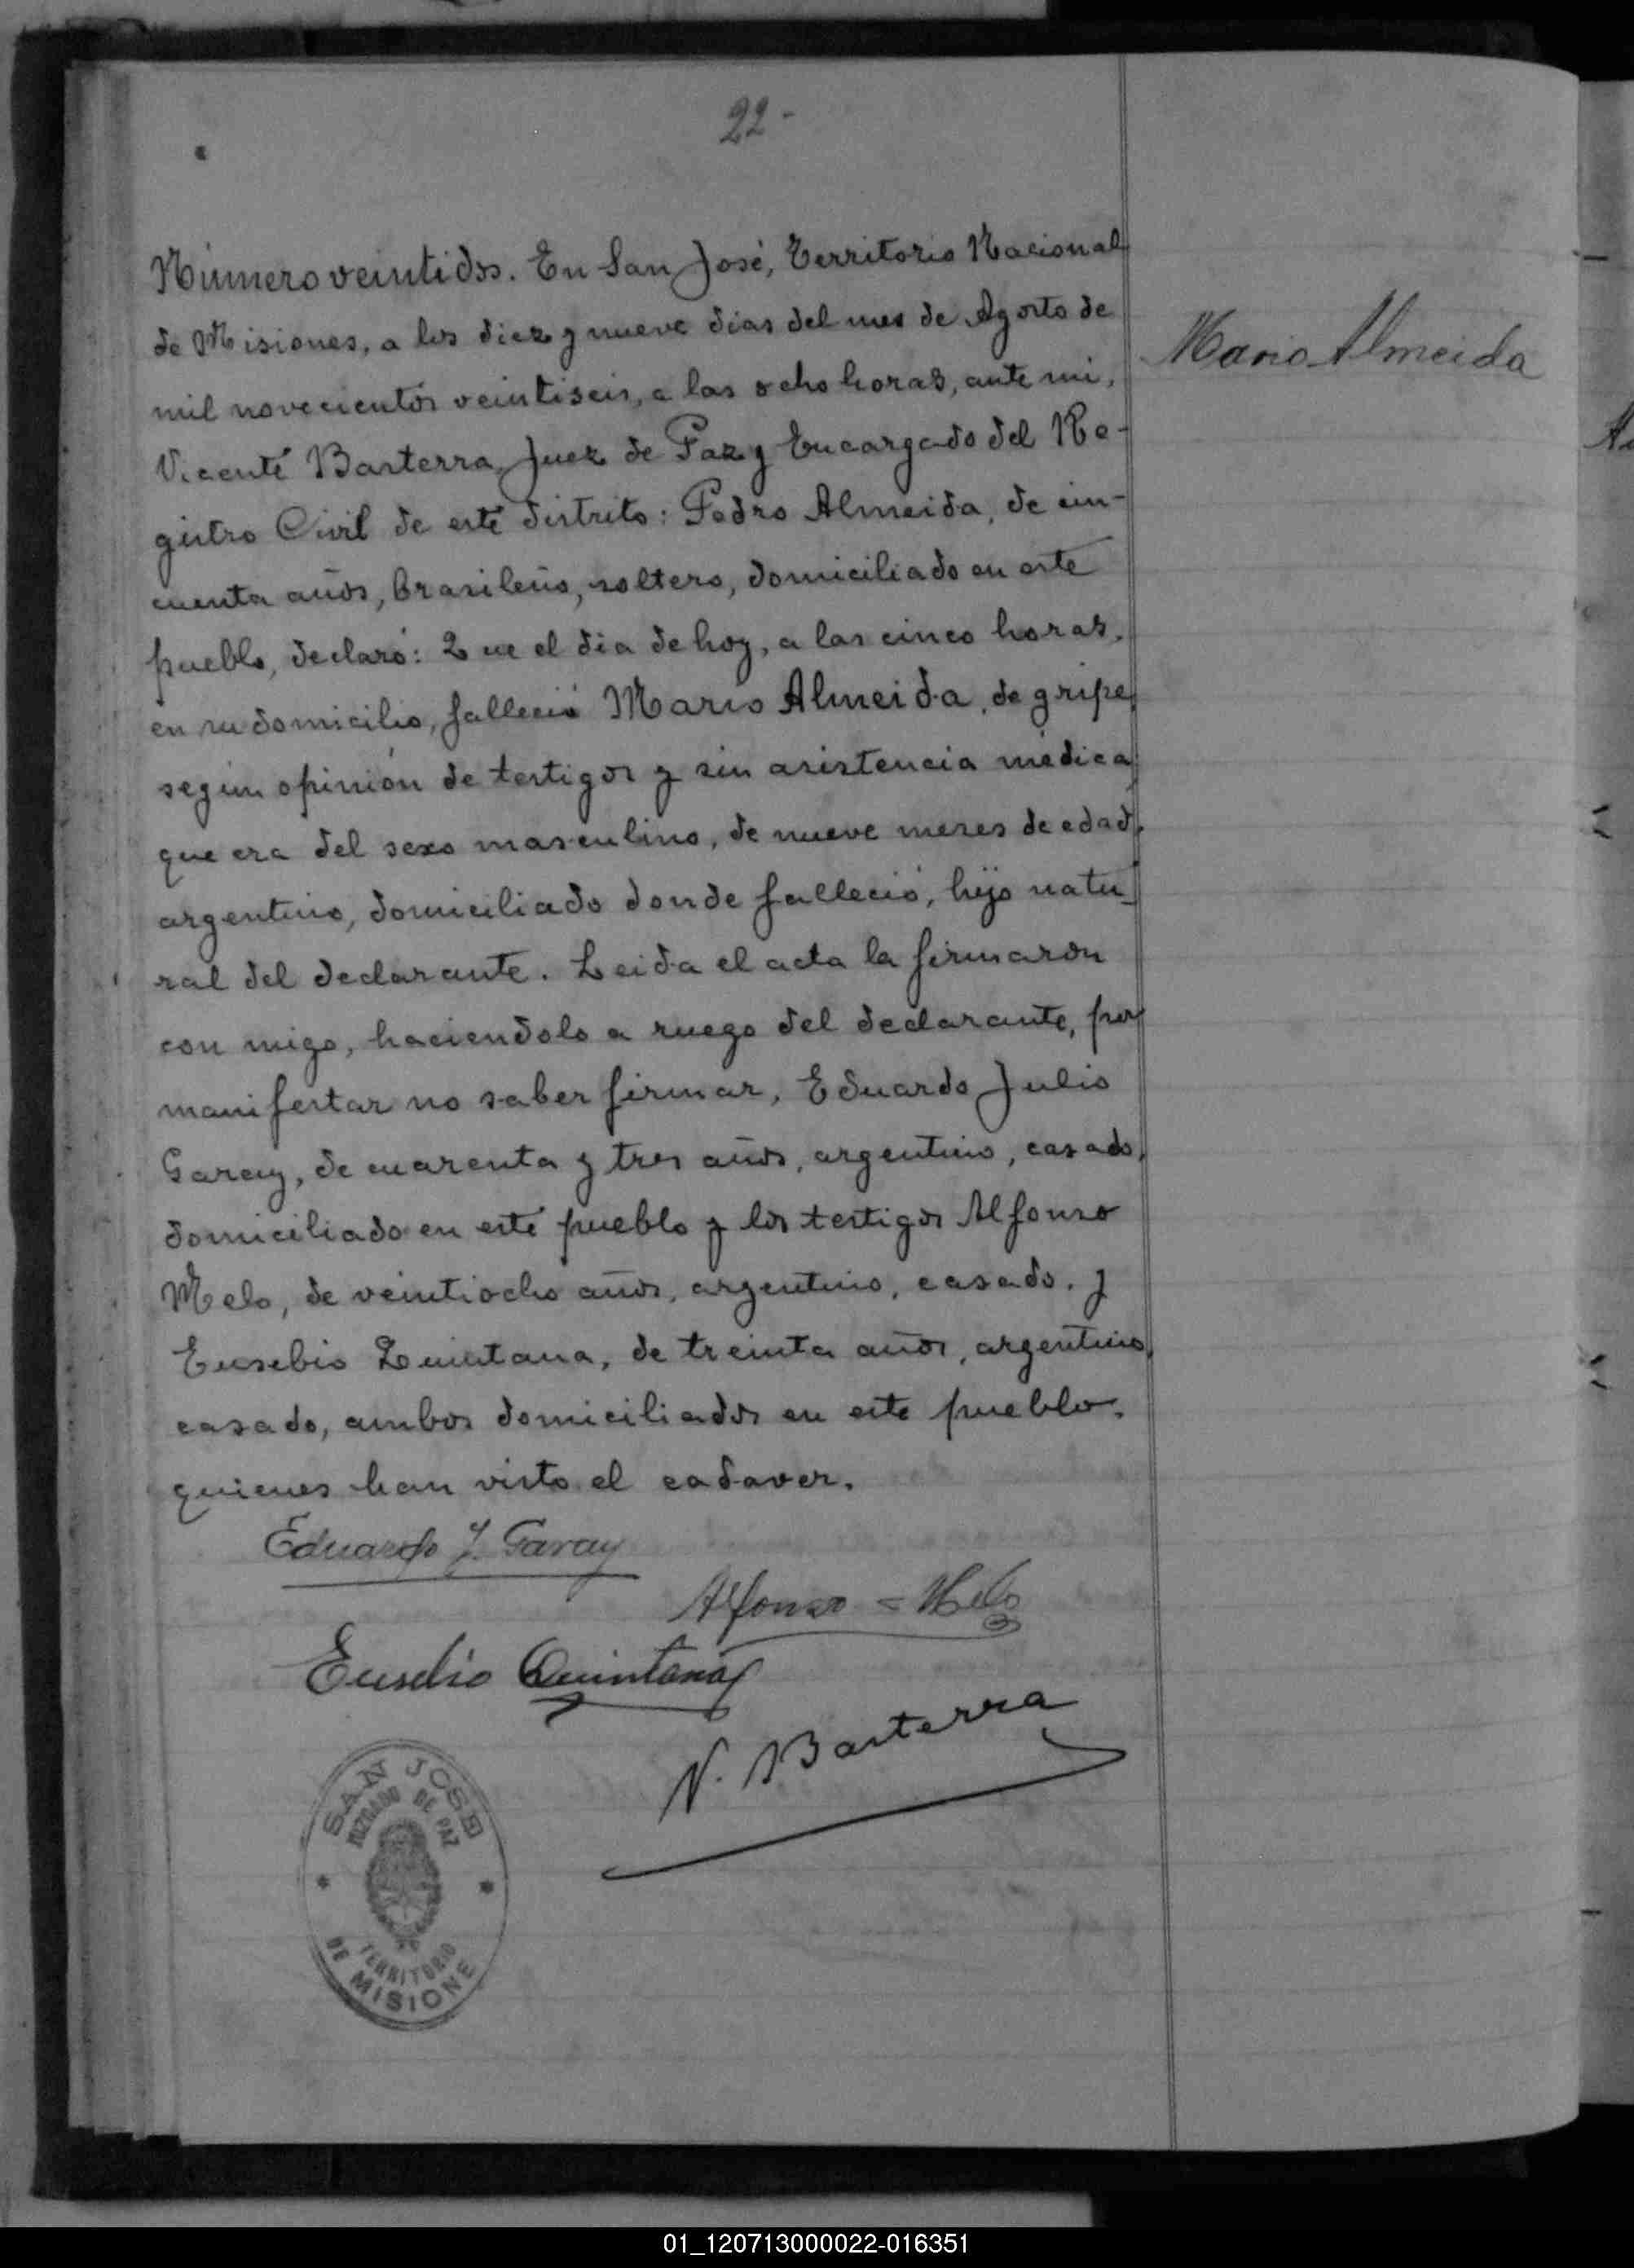 22-
Número veintidos. En San José, Territorio Nacional
de Misiones, a los diez y nueve dias del mes de Agosto de
mil novecientos veintiseis, a las ocho horas, ante mi,
Vicente Basterra, Juez de Paz y Encargado del Re-
gistro Civil de este distrito: Pedro Almeida, de cin-
cuenta años, brasileño, soltero, domiciliado en este
pueblo, declaró: Que el dia de hoy, a las cinco horas,
en su domicilio, falleció Mario Almeida, de gripe,
según opinión de testigos y sin asistencia médica,
que era del sexo masculino, de nueve meses de edad,
argentino, domiciliado donde falleció, hijo natu-
ral del declarante. Leida el acta la firmaron
con migo, haciendolo a ruego del declarante, por
manifestar no saber firmar, Eduardo Julio
Garay, de cuarenta y tres años, argentino, casado,
domiciliado en este pueblo y los testigos Alfonso
Melo, de veintiocho años, argentino, casado, y
Eusebio Quintana, de treinta años, argentino,
casado, ambos domiciliados en este pueblo,
quienes han visto el cadaver.
Mario Almeida
Eduardo J. Garay
Alfonso = Melo
Eusebio Quintana
V. Basterra
SAN JOSE
JUZGADO DE PAZ
TERRITORIO
DE MISIONE
01_120713000022-016351